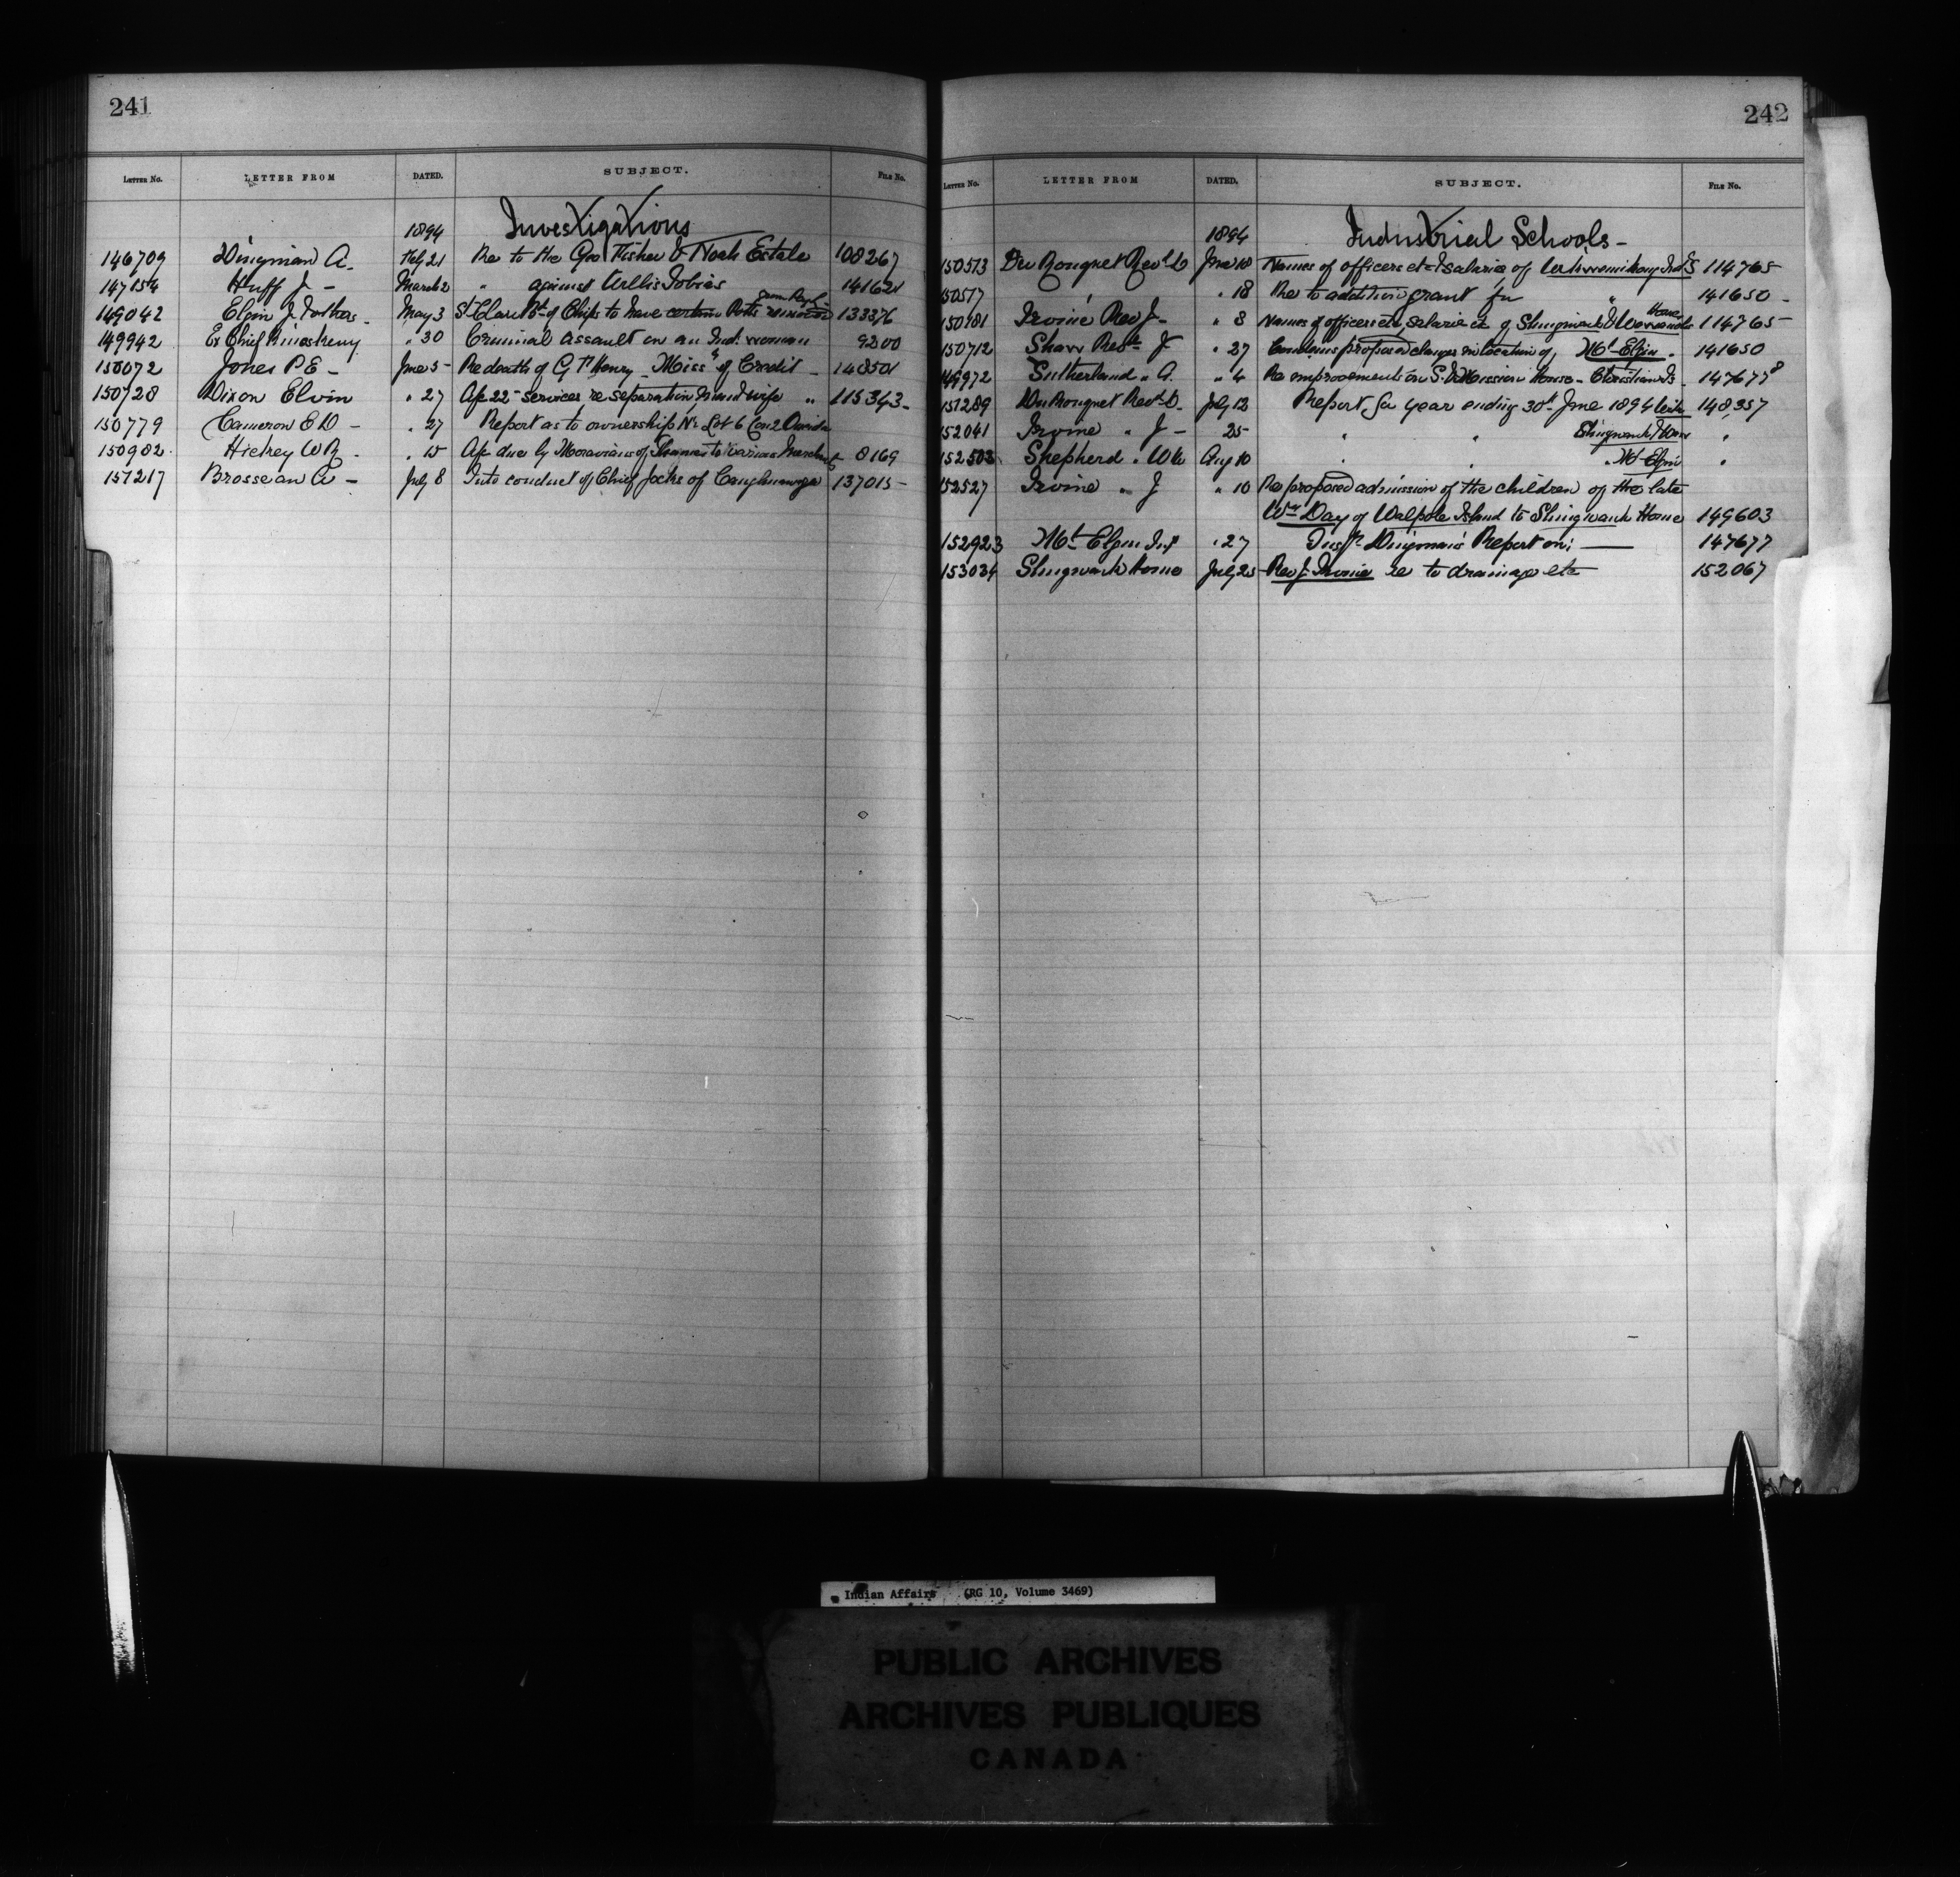 241
LETTER NO. LETTER FROM DATED. SUBJECT. FILE No.
1894 Investigations
146709 Dingman A. Feby 21 Re to the Geo Fisher & Noah Estate 108267
147154 Huff J - March 2 " against Wellis Tobias 141621
149042 Elgin J & others - May 3 St Clair Bd of Chips to have certain Potts removed from Res 133376
149942 Ex Chief " 30 Criminal Assault on an Ind. woman 9200
150072 Jones P E - June 5 - Re death of G P Henry - Miss's of Credit - 148501
150728 Dixon Elvin " 27 A/c 22 - services re separation man & wife " 115343 -
150779 Cameron E D - " 27 Report as to ownership No Lot 6 Con 2 Oneida
150902 W R - " 15 A/c due by Moravians of Thames to various 8169
151217 Brosseau A - July 8 Into conduct of Chief Jocks of Caughnawaga 137015 -
242
LETTER NO. LETTER FROM DATED. SUBJECT. FILE No.
1894 Industrial Schools -
150513 Du Ronquet Revd D June 18 Names of officers etc & salaries of Wikwemikong Indl S 114765
150517 " " 18 Re to addition grant for " 141650 -
150181 Irvine Rev J - " 8 Names of officers etc, salaries etc of Shingwauk & Wawanosh Home 114765 -
150712 Shaw Revd J " 27 Condemns proposed changes in location of Mt Elgin - 141650
149972 Sutherland " A. " 4 Re improvements on S. Mission House - Christian Is - 147677 8
151289 Du Ronquet Revd D. July 12 Report for year ending 30th June 1894 Wik 148,357
152041 Irvine " J - 25 " " Shingwauk Home "
152503 Shepherd " W W Aug 10 " " " Mt Elgin "
152527 Irvine " J " 10 Re proposed admission of the children of the late
Wm Day of Walpole Island to Shingwauk Home 149603
152923 Mt Elgin Inst " 27 Inspr Dingman's Report on; — 147677
153034 Shingwauk Home July 25 Rev J. Irvine re to drainage etc 152067
Indian Affairs (RG 10, Volume 3469)
PUBLIC ARCHIVES
ARCHIVES PUBLIQUES
CANADA